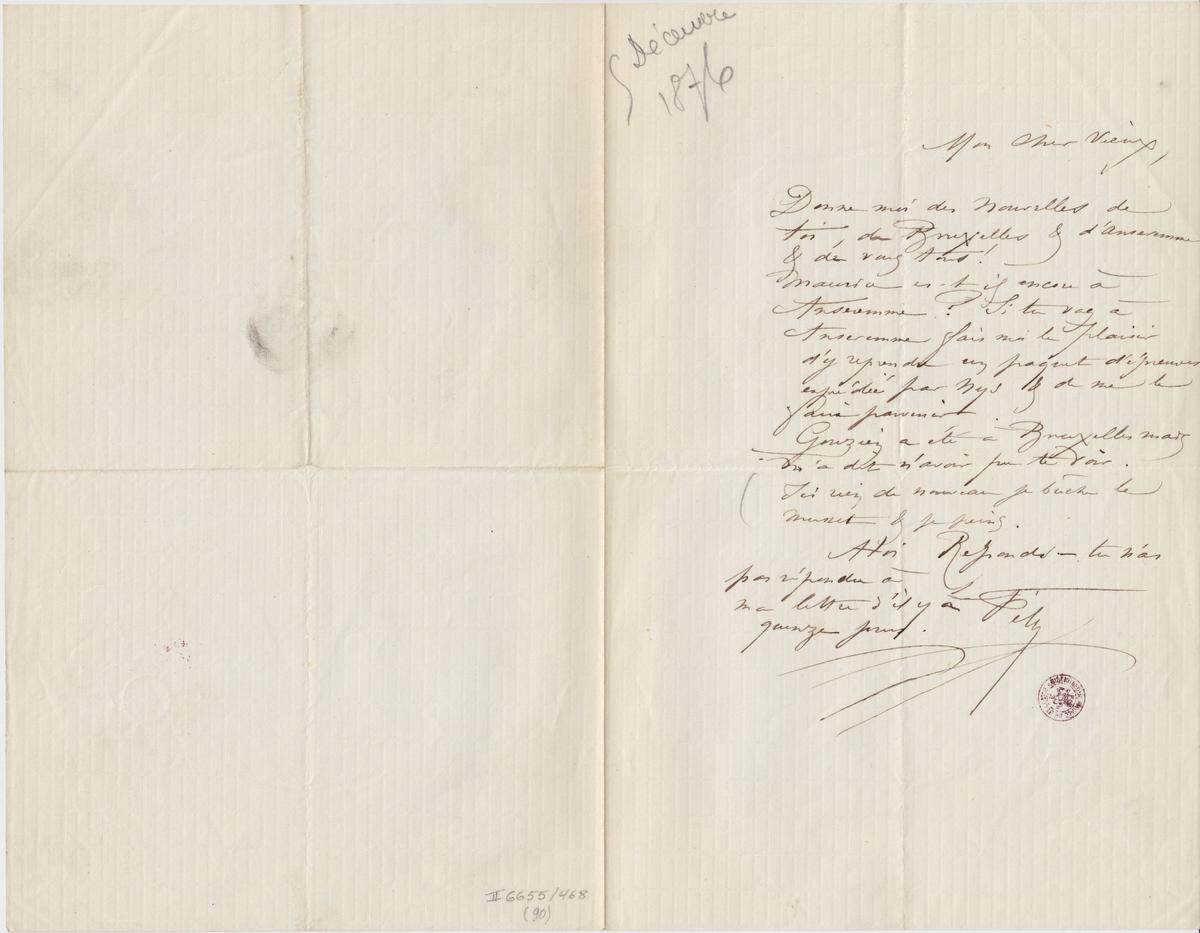 5 Décembre
1876
Mon cher Vieux,
Donne moi des Nouvelles de
toi, de Bruxelles & d'Anseremme
& de vous tous!
Maurice es-t il encore à
Anseremme? Si tu vas à
Anseremme fais moi le plaisir
d'y reprendre un paquet d'épreuves
expédié par Nys & de me le
faire parvenir.
Gouzien a été à Bruxelles mais
m'a dit n'avoir pu te voir.
Ici rien de nouveau je bûche le
musset & je peins.
A toi Reponds - tu n'as
pas répondu à
ma lettre d'il y a
quinze jours.
Fély
II 6655/468
(90)